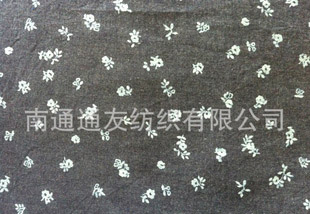 南通通友纺织有限公司